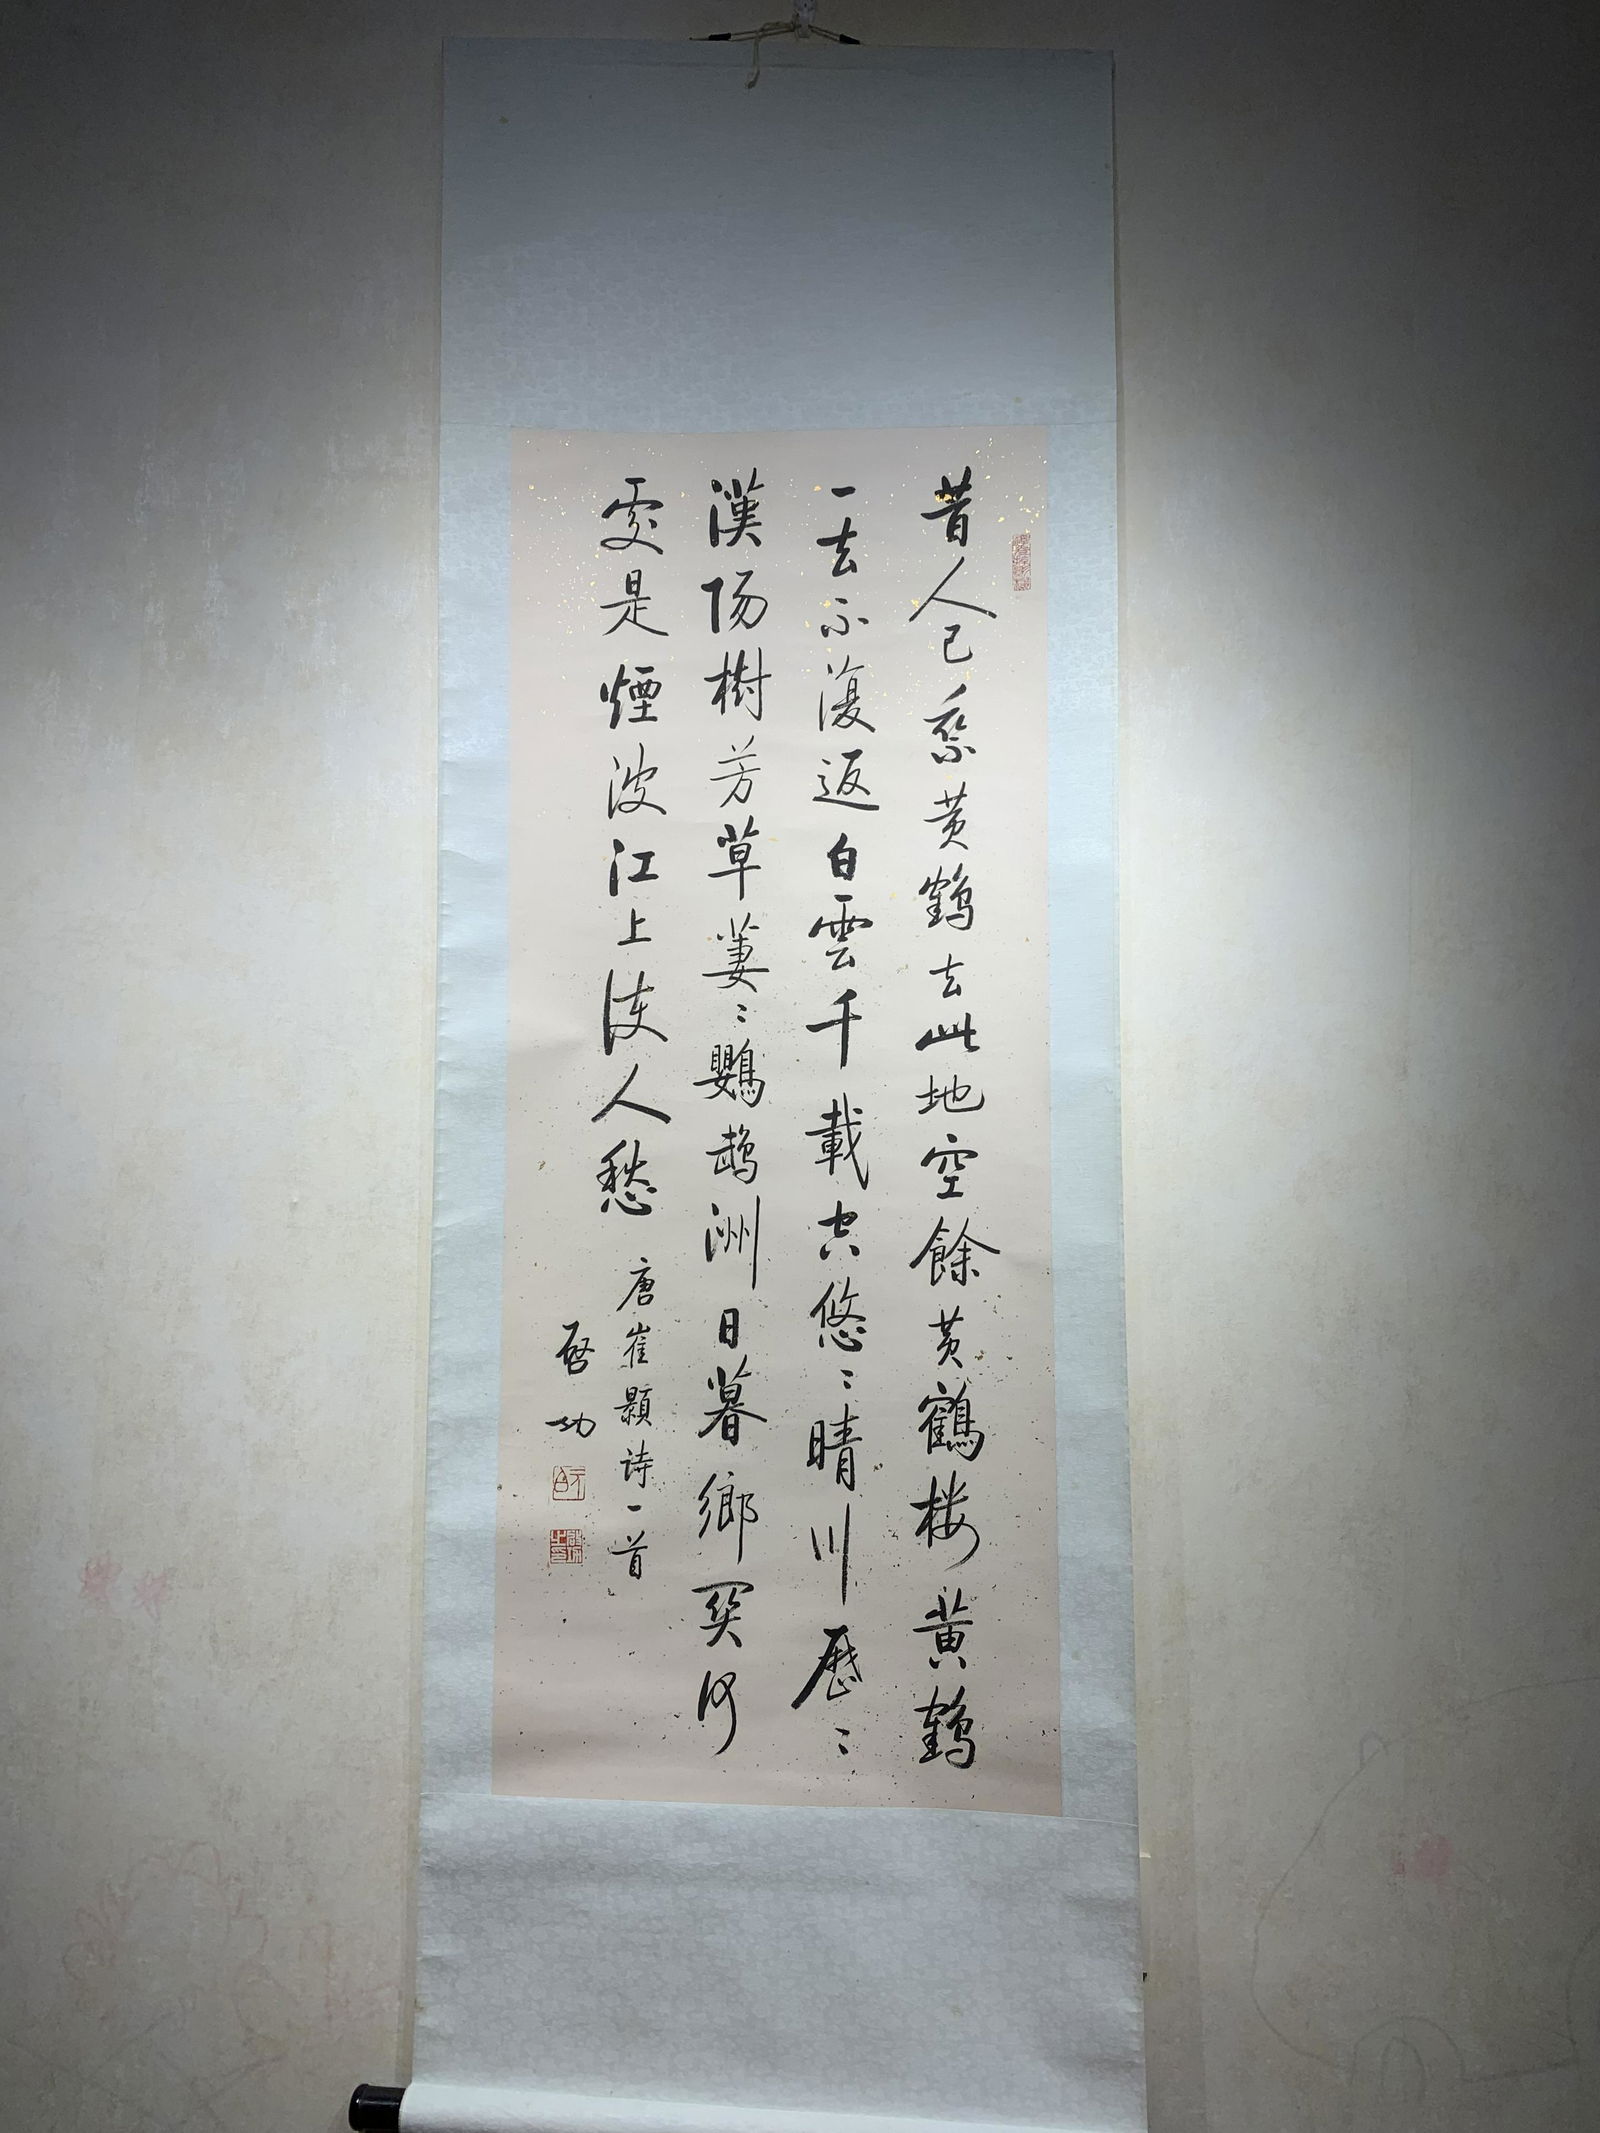 昔人已乘黄鹤去此地空餘黄鶴楼黄鹤
一去不復返白雲千載空悠〻晴川歷〻
漢陽樹芳草萋〻鸚鵡洲日暮鄉関何
處是煙波江上使人愁
唐崔顥诗一首
启功